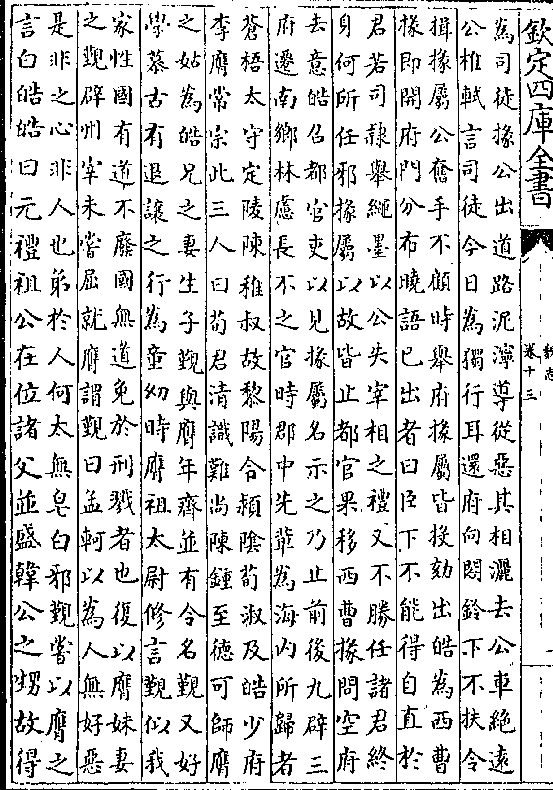 欽定四庫全書
魏志
卷十三
為司徒掾公出道路泥濘導從惡其相灑去公車絶遠
公椎軾言司徒今日為獨行耳還府向閤鈴下不扶令
揖掾屬公奮手不顧時舉府掾屬皆投劾出皓為西曹
掾即開府門分布曉語已出者曰臣下不能得自直於
君若司隸舉繩墨以公失宰相之禮又不勝任諸君終
身何所任邪掾屬以故皆止都官果移西曹掾問空府
去意皓召都官吏以見掾屬名示之乃止前後九辟三
府遷南鄉林慮長不之官時郡中先輩為海内所歸者
蒼梧太守定陵陳稚叔故黎陽令頴陰荀淑及皓少府
李膺常宗此三人曰荀君清識難尚陳鍾至徳可師膺
之姑為皓兄之妻生子覲與膺年齊並有令名覲又好
學慕古有退讓之行為童幼時膺祖太尉修言覲似我
家性國有道不廢國無道免於刑戮者也復以膺妹妻
之覲辟州宰未嘗屈就膺謂覲曰孟軻以為人無好惡
是非之心非人也弟於人何太無皂白邪覲嘗以膺之
言白皓皓曰元禮祖公在位諸父並盛韓公之甥故得